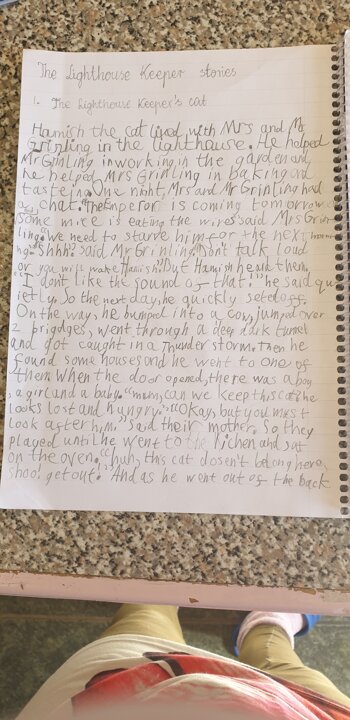 The Lighthouse Keeper stories
1. The Lighthouse Keeper's cat
Hamish the cat lived with Mrs and Mr
Grinling in the lighthouse. He helped
Mr Grinling in working in the garden and
he helped Mrs Grinling in baking and
tasteing. One night, Mrs and Mr Grinling had
a chat. "The Emperor is coming tomorrow
some mice is eating the wires" said Mrs Grin-
ling. "We need to starve him for the next morni-
ng. "Shhh" said Mr Grinling. Don't talk loud
or you will wake Hamish. But Hamish heard them.
"I don't like the sound of that!" he said qu-
ietly. So the next day, he quickly set off.
On the way, he bumped into a cow, jumped over
2 bridges, went through a deep dark tunnel
and got caught in a Thunder storm. Then he
found some houses and he went to one of
them. When the door opened, there was a boy
, a girl and a baby. "mum, can we keep this cat he
looks lost and hungry." "Okay, but you must
look after him." said their mother. So they
played until he went to the kichen and sat
on the oven. "huh, this cat dosen't belong here,
shoo! get out!" And as he went out of the back